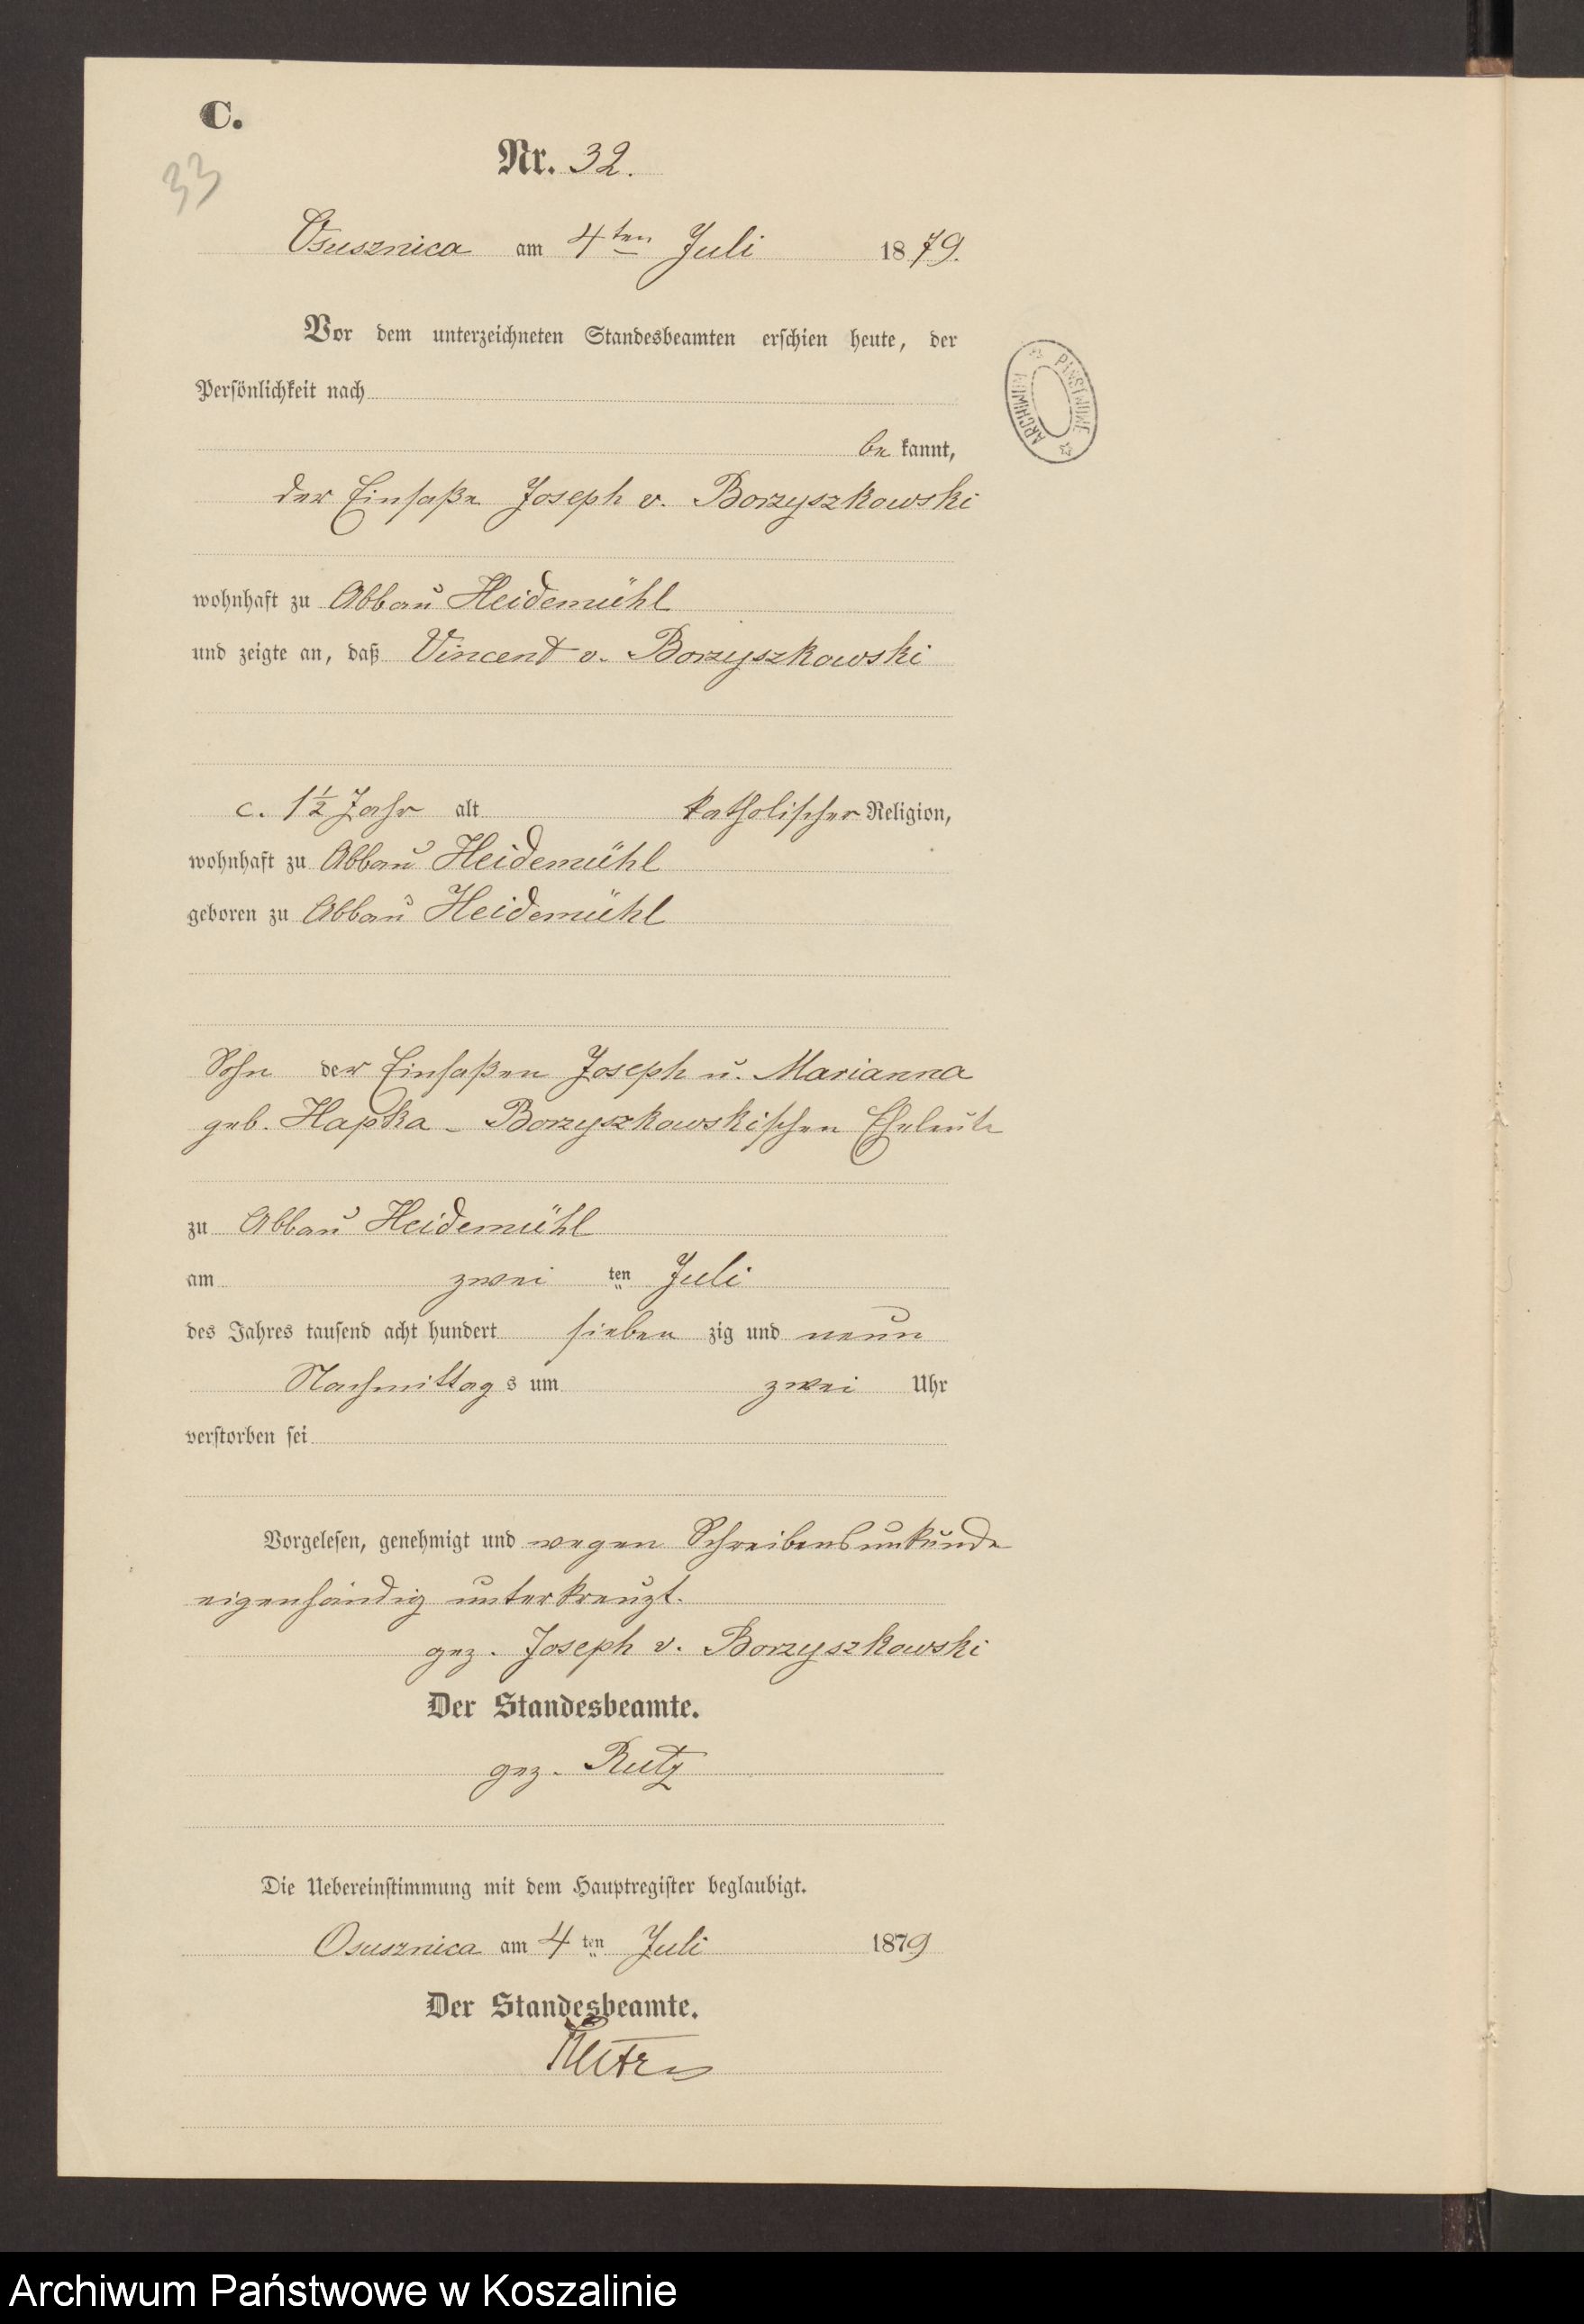 C.
33
Nr. 32.
Osusznica am 4ten Juli 1879.
Vor dem unterzeichneten Standesbeamten erschien heute, der
Persönlichkeit nach
be kannt,
der Einsaße Joseph v. Borzyszkowski
wohnhaft zu Abbau Heidemühl
und zeigte an, daß Vincent v. Borzyszkowski
c. 1½ Jahr alt katholischer Religion,
wohnhaft zu Abbau Heidemühl
geboren zu Abbau Heidemühl
Sohn der Einsaßen Joseph u. Marianna
geb. Hapka - Borzyszkowskischen Eheleute
zu Abbau Heidemühl
am zwei ten Juli
des Jahres tausend acht hundert sieben zig und neun
Nachmittag s um zwei Uhr
verstorben sei
Vorgelesen, genehmigt und wegen Schreibensunkunde
eigenhändig unterkreuzt.
gez. Joseph v. Borzyszkowski
Der Standesbeamte.
gez. Rutz
Die Uebereinstimmung mit dem Hauptregister beglaubigt.
Osusznica am 4 ten Juli 1879
Der Standesbeamte.
Rutz
ARCHIWUM PAŃSTWOWE
Archiwum Państwowe w Koszalinie